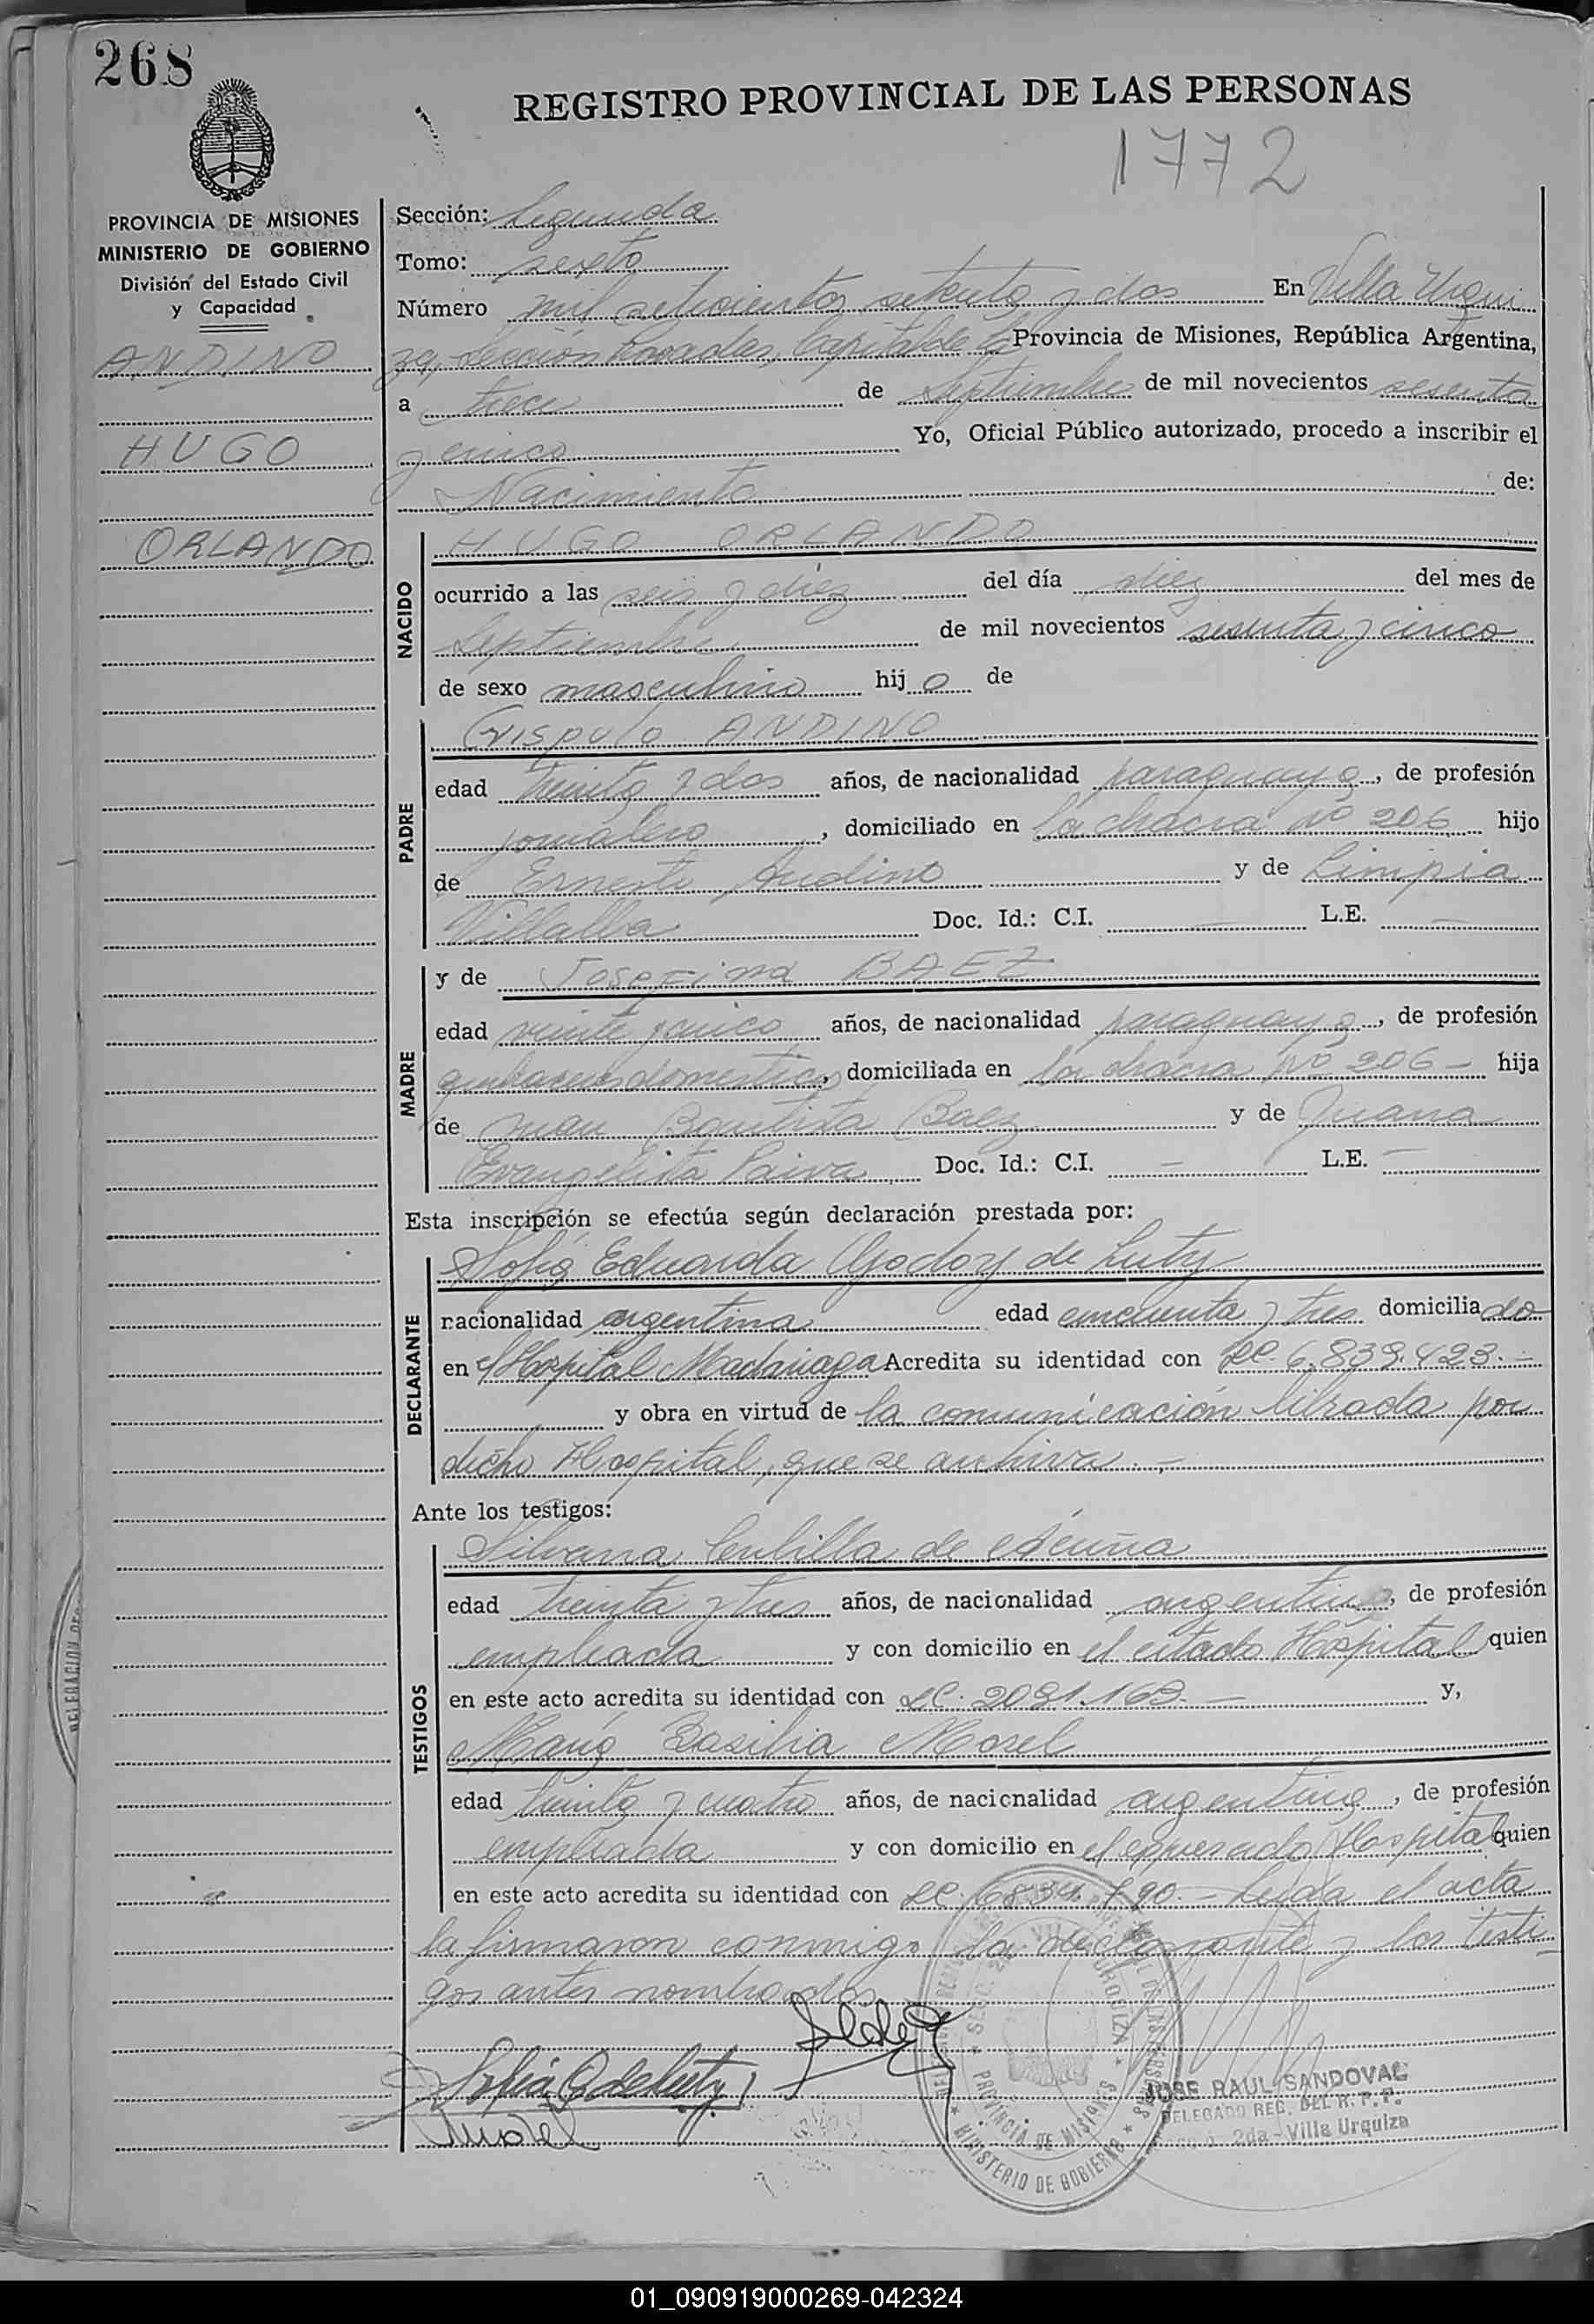 268
REGISTRO PROVINCIAL DE LAS PERSONAS
1772
PROVINCIA DE MISIONES
MINISTERIO DE GOBIERNO
División del Estado Civil
y Capacidad
ANDINO
HUGO
ORLANDO
Sección: Segunda
Tomo: sexto
Número mil setecientos setenta y dos En Villa Urqui
za, Sección Posadas, Capital de la Provincia de Misiones, República Argentina,
a trece de Septiembre de mil novecientos sesenta
y cinco Yo, Oficial Público autorizado, procedo a inscribir el
Nacimiento de:
NACIDO
HUGO ORLANDO
ocurrido a las seis y diez del día diez del mes de
Septiembre de mil novecientos sesenta y cinco
de sexo masculino hij o de
PADRE
Crispulo ANDINO
edad treinta y dos años, de nacionalidad paraguaya, de profesión
jornalero, domiciliado en la chacra nº 206 hijo
de Ernesto Andino y de Limpia
Villalba Doc. Id.: C.I. — L.E. —
MADRE
y de Josefina BAEZ
edad veinte y cinco años, de nacionalidad paraguaya, de profesión
quehaceres domesticos, domiciliada en la chacra nº 206 - hija
de Juan Bautista Baez y de Juana
Evangelista Paiva Doc. Id.: C.I. — L.E. —
Esta inscripción se efectúa según declaración prestada por:
DECLARANTE
Sofia Eduarda Godoy de Luty
nacionalidad argentina edad cincuenta y tres domicilia da
en el Hospital Madariaga Acredita su identidad con LC. 6.839.423.-
y obra en virtud de la comunicación librada por
dicho Hospital, que se archiva.-
Ante los testigos:
TESTIGOS
Silvana Centilla de Acuña
edad treinta y tres años, de nacionalidad argentina, de profesión
empleada y con domicilio en el citado Hospital quien
en este acto acredita su identidad con LC. 2081.163.- y,
María Basilia Morel
edad treinta y cuatro años, de nacionalidad argentina, de profesión
empleada y con domicilio en el expresado Hospital quien
en este acto acredita su identidad con LC. Leida el acta
la firmaron conmigo la declarante y los testi
gos antes nombrados
Sofia G de Luty
Morel
PROVINCIA DE MISIONES
MINISTERIO DE GOBIERNO
JOSE RAUL SANDOVAL
DELEGADO REG. DEL R. P. P.
2da - Villa Urquiza
01_090919000269-042324